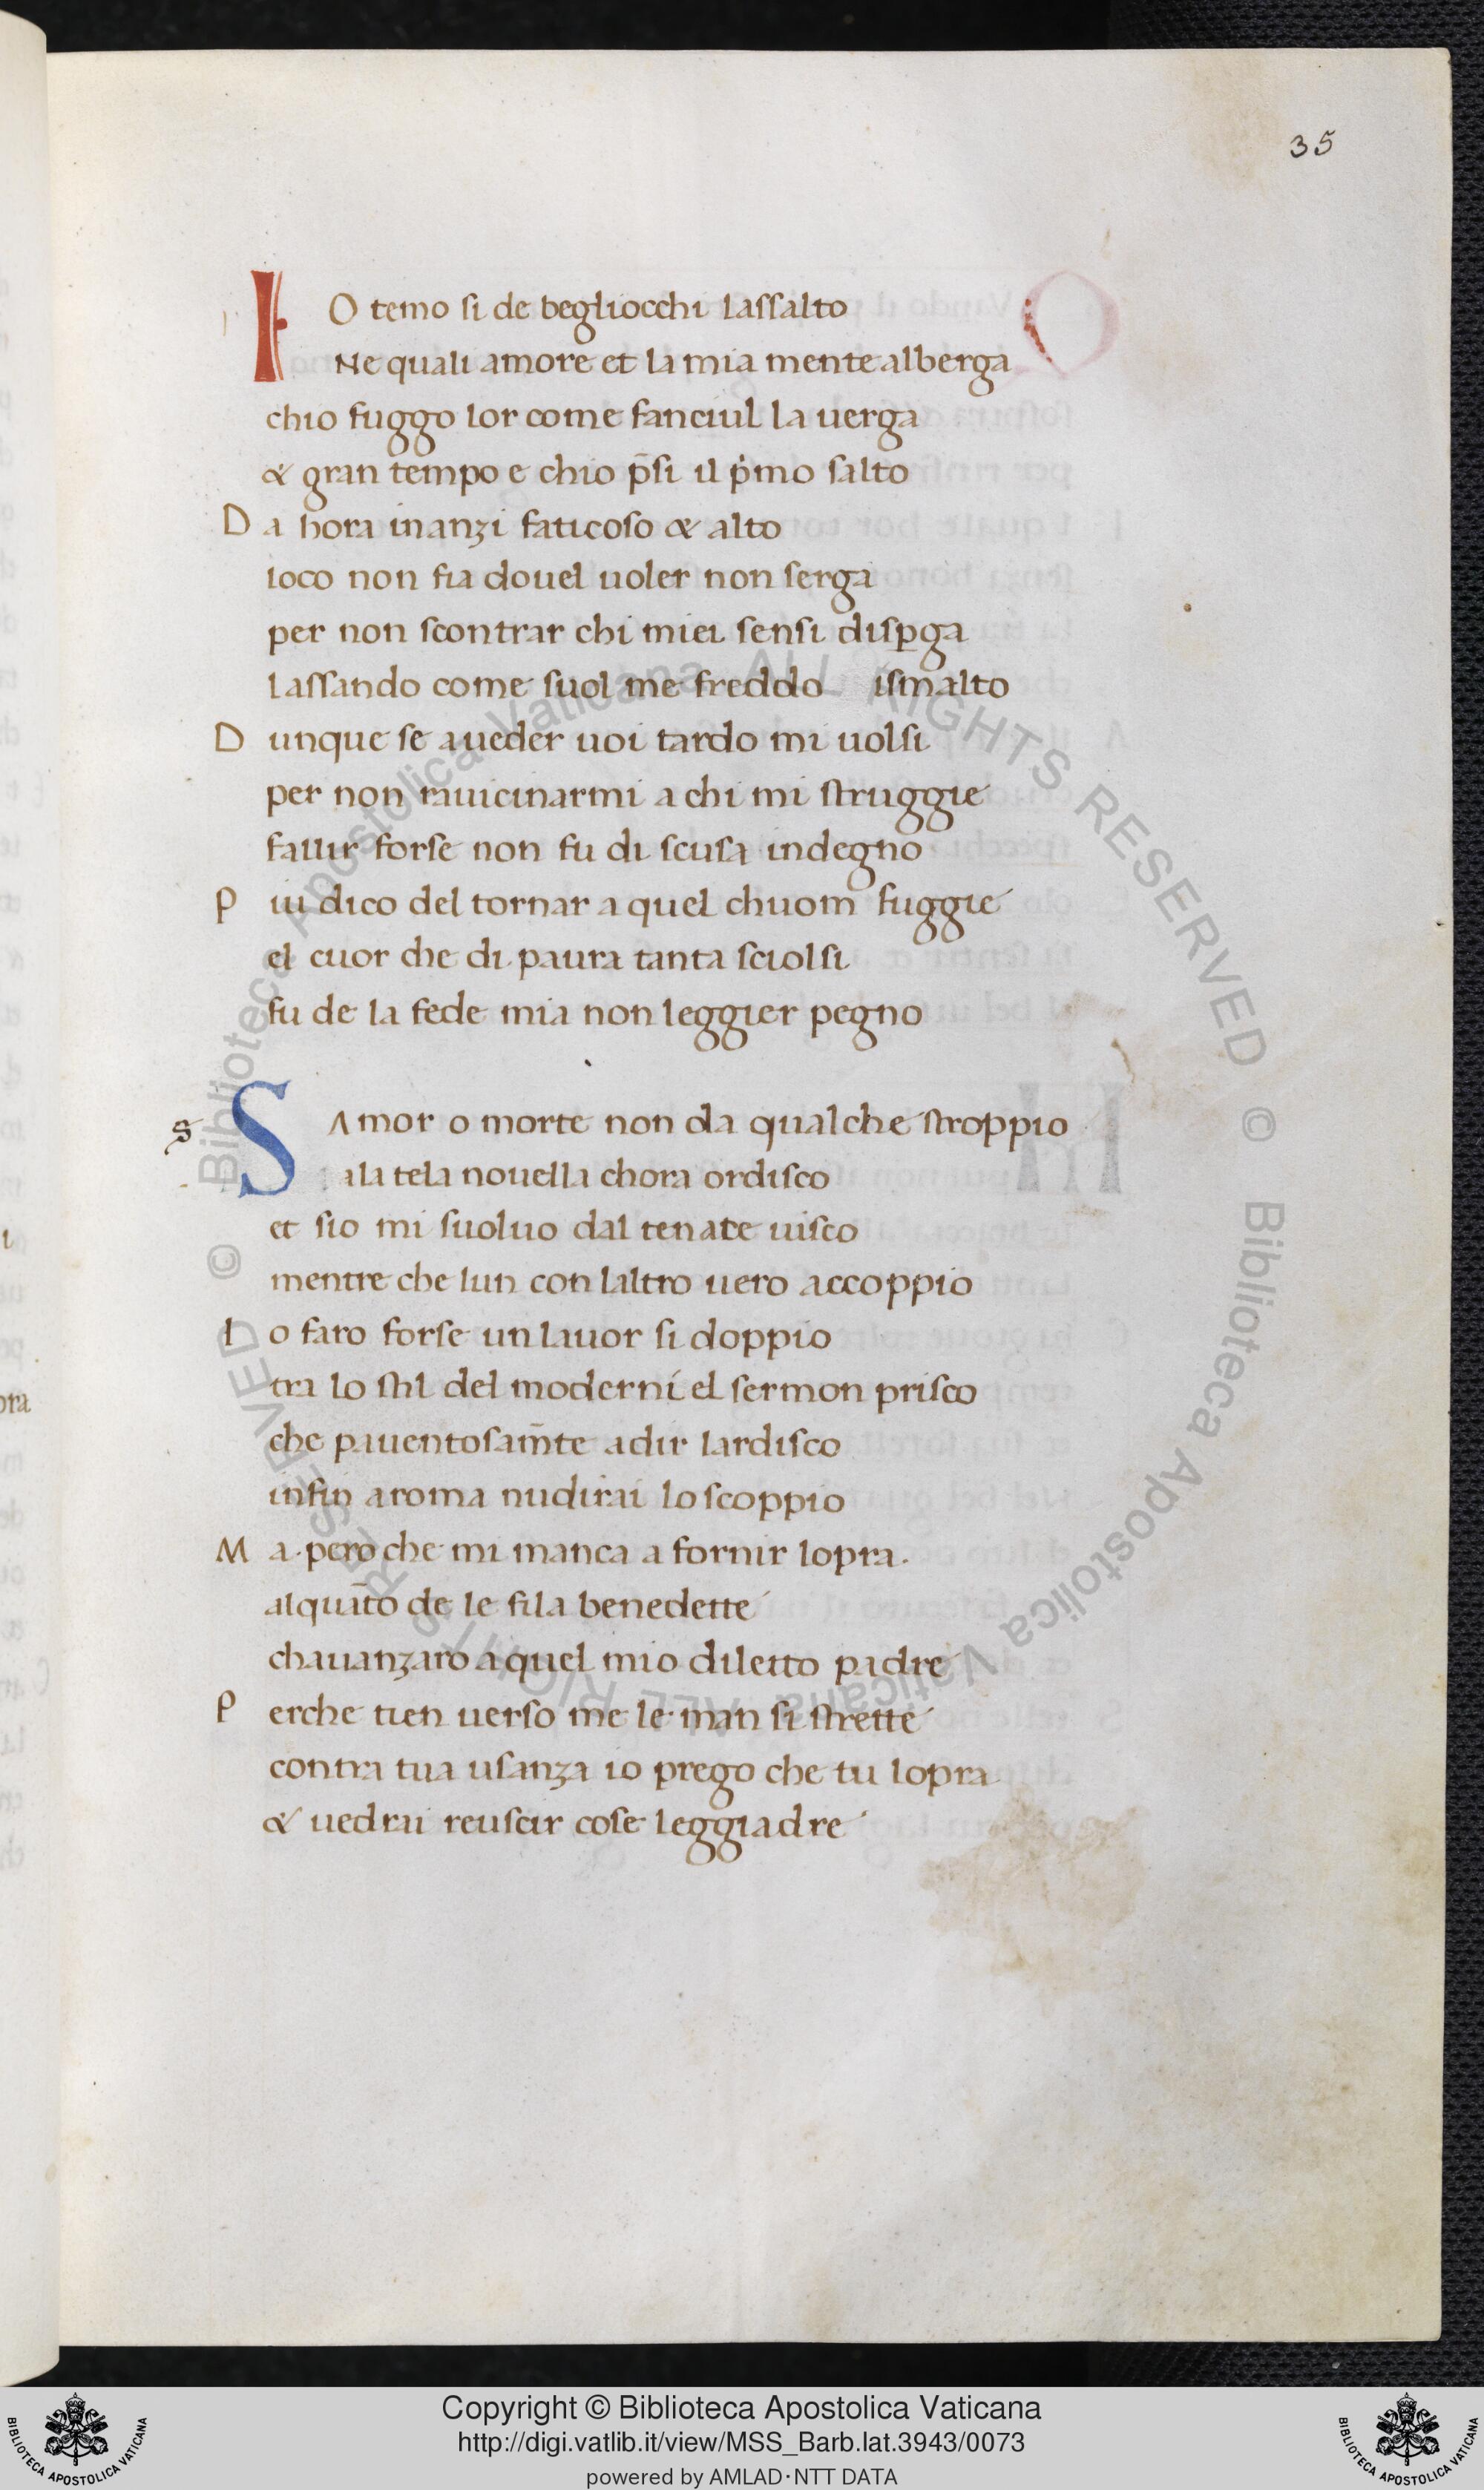 35
IO temo si de begliocchi lassalto
Ne quali amore et la mia mente alberga
chio fuggo lor come fanciul la uerga
& gran tempo e chio p̄si il pͥmo salto
Da hora inanzi faticoso & alto
loco non fia douel uoler non serga
per non scontrar chi miei sensi disꝑga
lassando come suol me freddo ismalto
Dunque se aueder uoi tardo mi uolsi
per non rauicinarmi a chi mi struggie
fallir forse non fu di scusa indegno
Piu dico del tornar a quel chuom fuggie
el cuor che di paura tanta sciolsi
fu de la fede mia non leggier pegno
s
SAmor o morte non da qualche stroppio
ala tela nouella chora ordisco
et sio mi suoluo dal tenace uisco
mentre che lun con laltro uero accoppio
Io faro forse un lauor si doppio
tra lo stil del moderni el sermon prisco
che pauentosam̄te a dir lardisco
infin a roma nudirai lo scoppio
Ma pero che mi manca a fornir lopra.
alquāto de le fila benedette
chauanzaro a quel mio diletto padre
Perche tien uerso me le man si strette
contra tua usanza io prego che tu lopra
& uedrai reuscir cose leggiadre
Copyright © Biblioteca Apostolica Vaticana
http://digi.vatlib.it/view/MSS_Barb.lat.3943/0073
powered by AMLAD·NTT DATA
BIBLIOTECA APOSTOLICA VATICANA
BIBLIOTECA APOSTOLICA VATICANA
© Biblioteca Apostolica Vaticana ALL RIGHTS RESERVED © Biblioteca Apostolica Vaticana ALL RIGHTS RESERVED